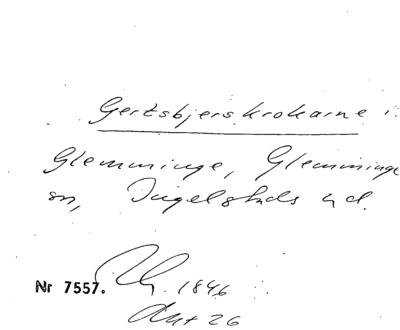 Gertsbjerskrokarne i.
Glemminge, Glemminge
sn, Ingelstads hd.
Nr 7557. 1846
Akt 26